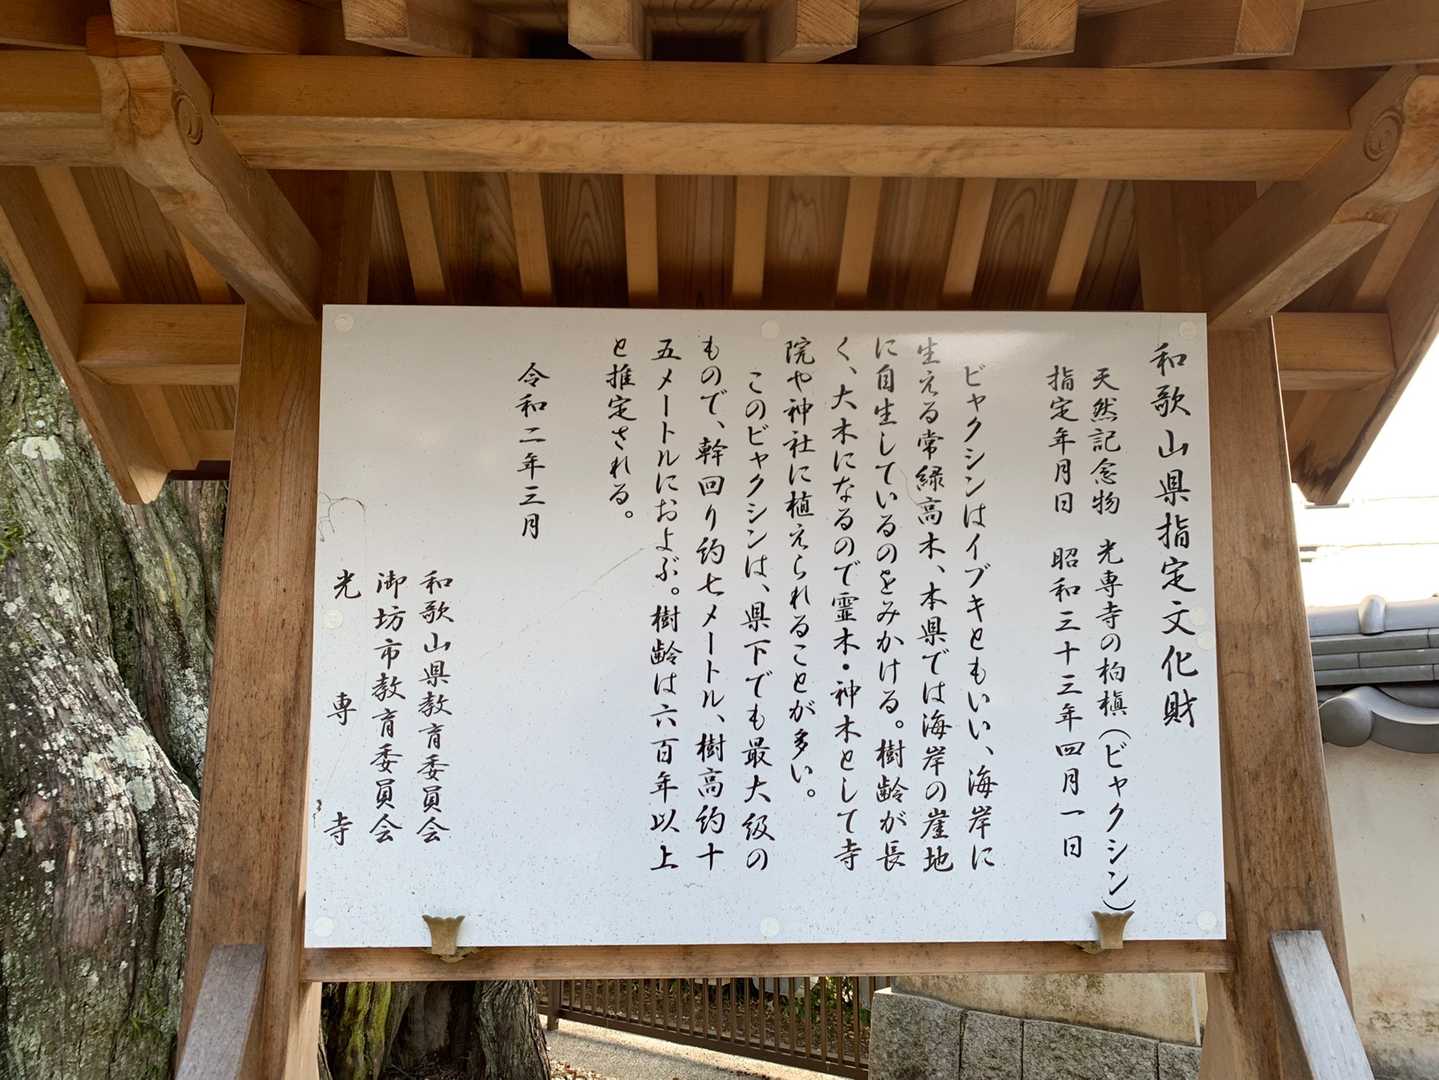 和歌山県指定文化財
天然記念物 光専寺の柏槇(ビャクシン)
指定年月日 昭和三十三年四月一日
ビャクシンはイブキともいい、海岸に
生える常緑高木、本県では海岸の崖地
に自生しているのをみかける。樹齢が長
く、大木になるので霊木・神木として寺
院や神社に植えられることが多い。
このビャクシンは、県下でも最大級の
もので、幹回り約七メートル、樹高約十
五メートルにおよぶ。樹齢は六百年以上
と推定される。
令和二年三月
和歌山県教育委員会
御坊市教育委員会
光専寺